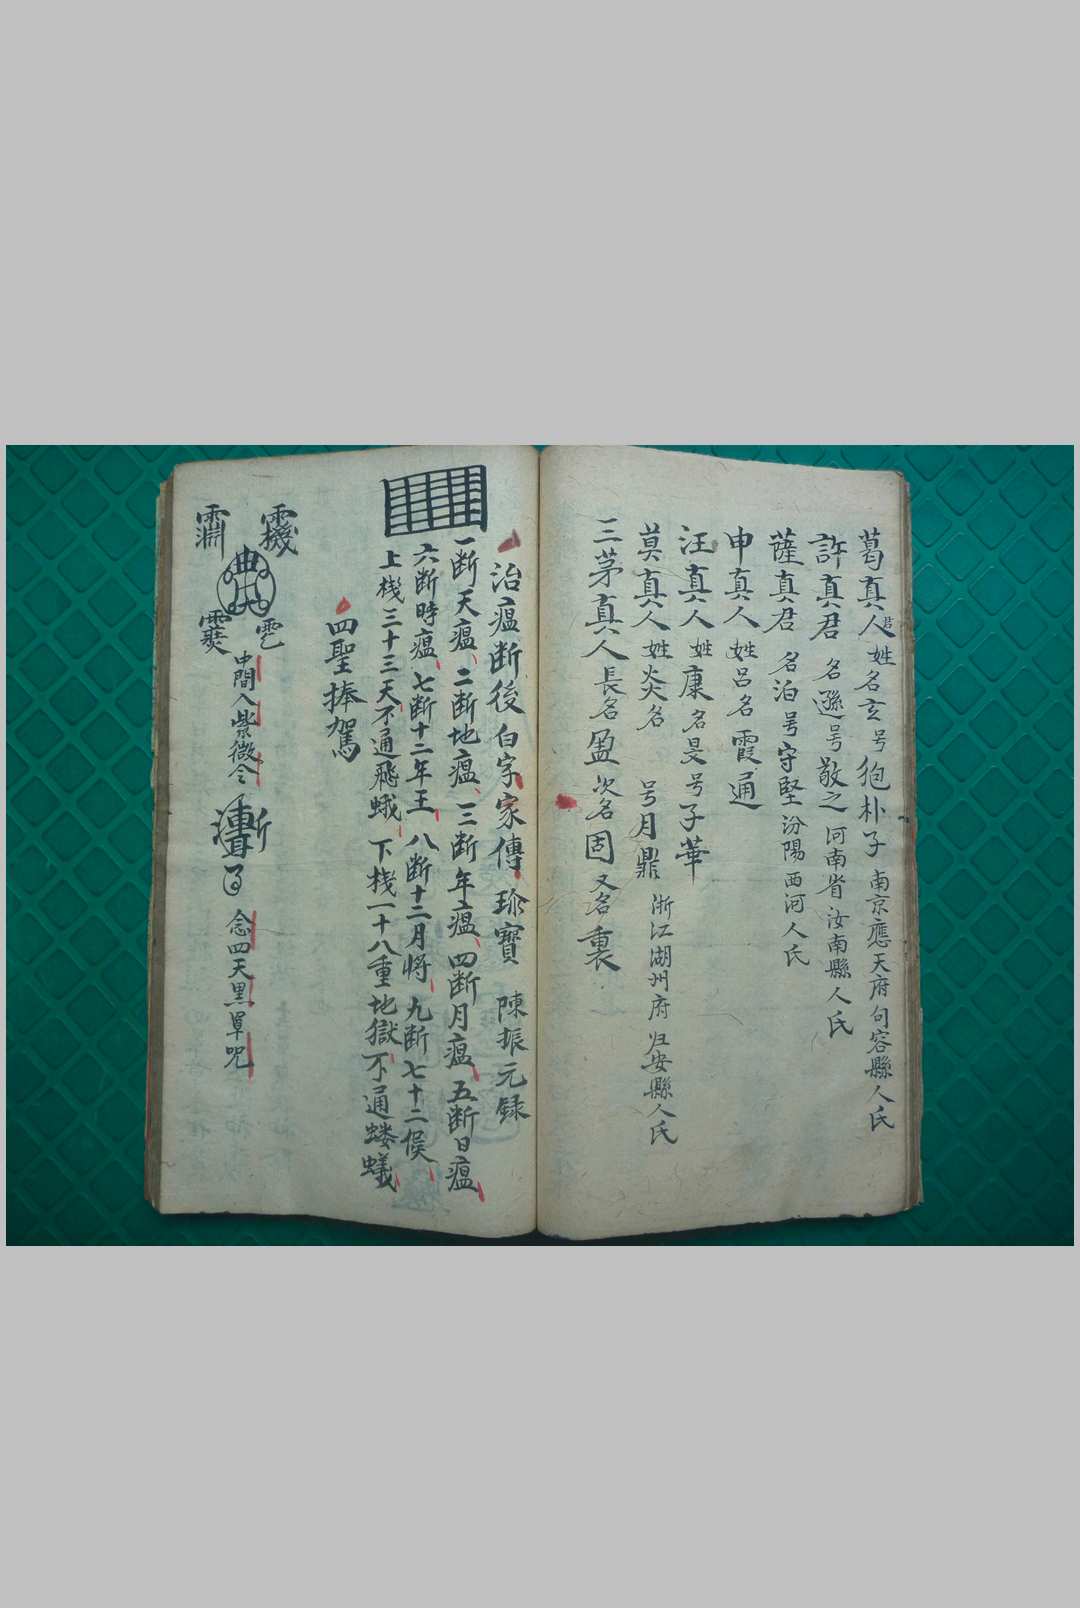 葛真人君姓名玄号狍朴子南京應天府句容縣人氏
許真君名遜号敬之河南省汝南縣人氏
薩真君名泊号守堅汾陽西河人氏
申真人姓呂名霞通
汪真人姓康名旻号子華
莫真人姓炎名号月鼎浙江湖州府归安縣人氏
三茅真人長名盈次名固又名裏
治瘟断後白字家傳珎寶陳振元録
一断天瘟、二断地瘟、三断年瘟、四断月瘟、五断日瘟、
六断時瘟、七断十二年王、八断十二月将、九断七十二候、
上棧三十三天不通飛蛾、下棧一十八重地獄不通螻蟻、
四聖捧駕
中間入紫微令
念四天黑單呪